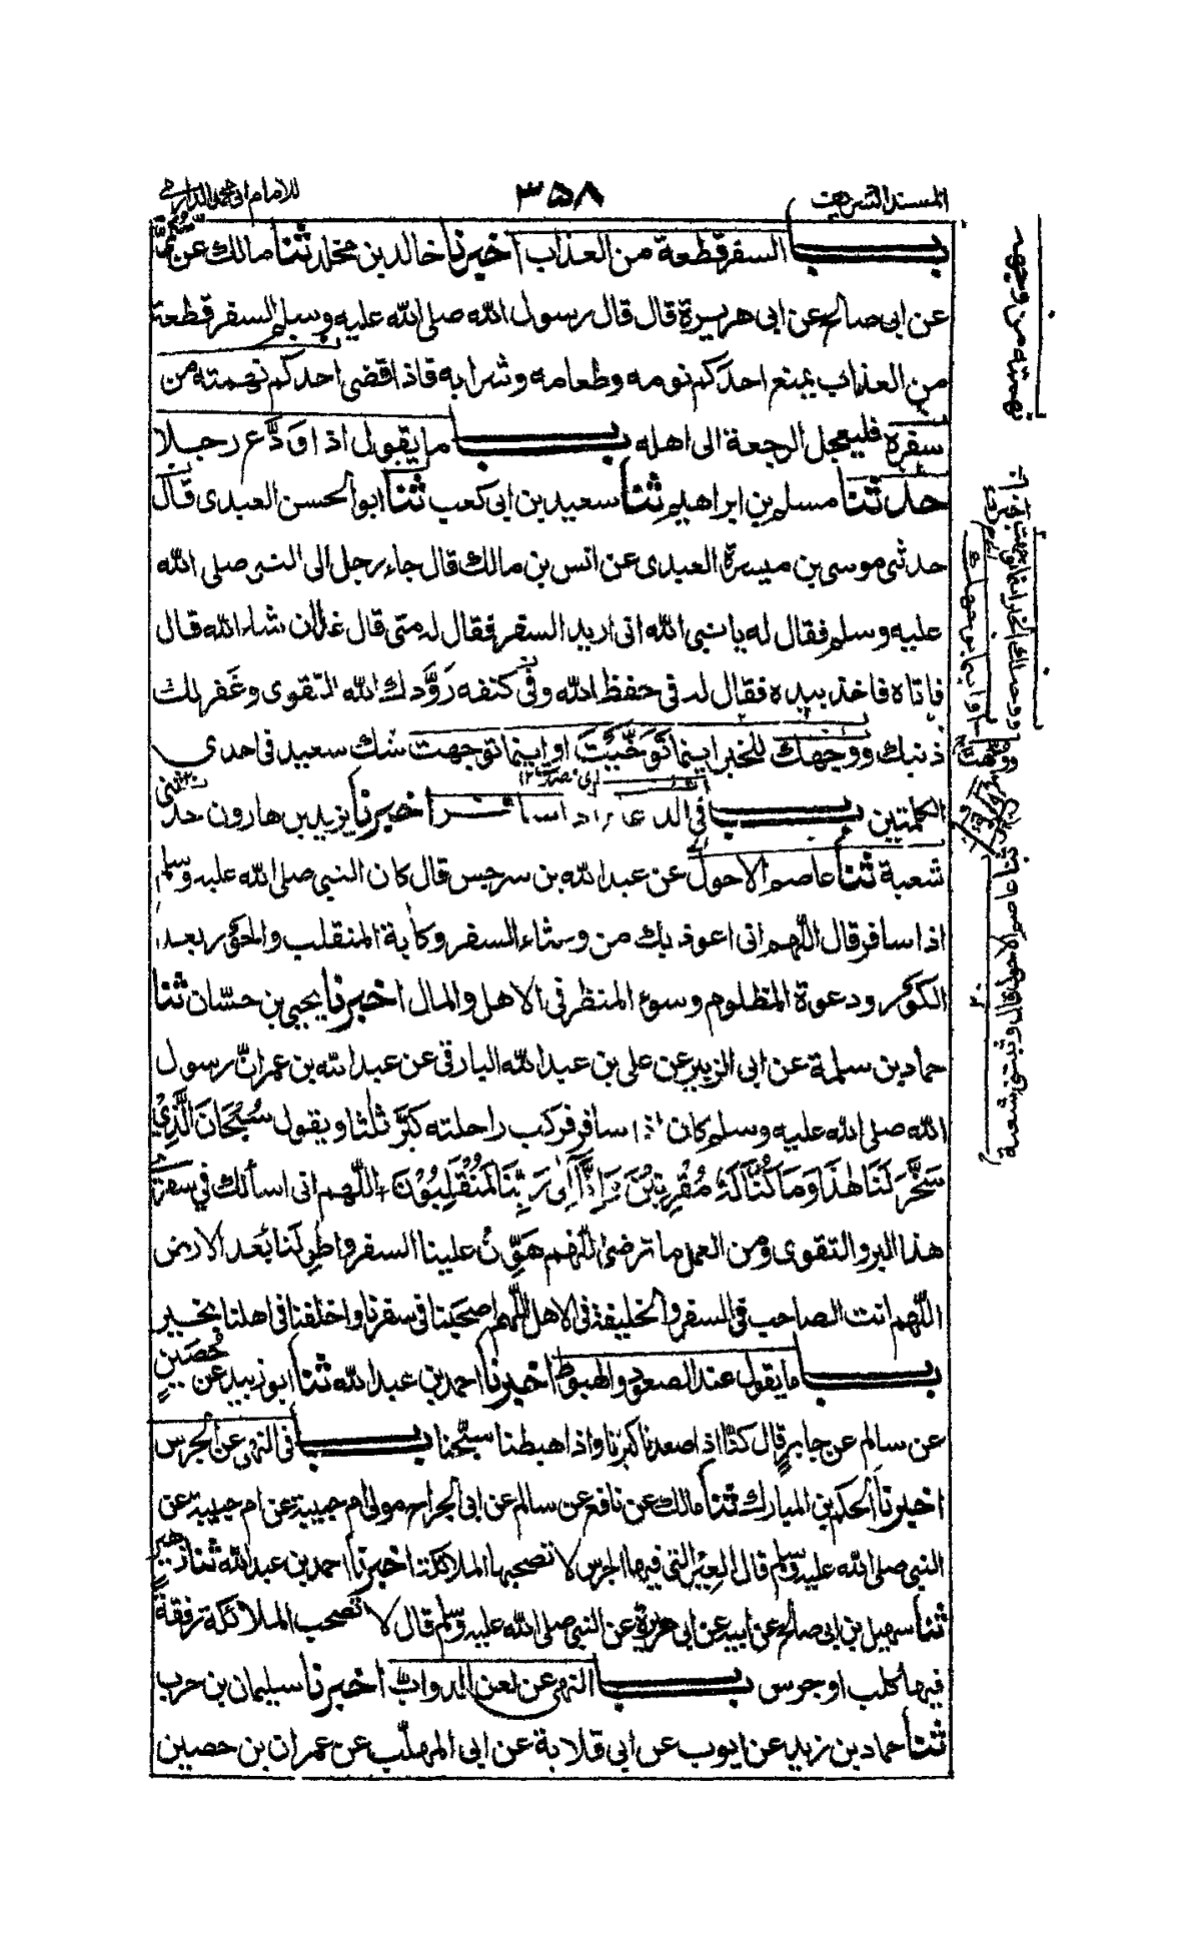 المسند الشريف ٣٥٨ للامام ابي محمد الدارمي
باب السفر قطعة من العذاب اخبرنا خالد بن مخلد ثنا مالك عن سمي
عن ابى صالح عن ابى هريرة قال قال رسول الله صلى الله عليه وسلم السفر قطعة
من العذاب يمنع احدكم نومه وطعامه وشرابه فاذا قضى احدكم نهمته من
سفره فليعجل الرجعة الى اهله باب ما يقول اذا وَدَّع رجلا
حدثنا مسلم بن ابراهيم ثنا سعيد بن ابى كعب ثنا ابو الحسن العبدى قال
حدثنى موسى بن ميسرة العبدى عن انس بن مالك قال جاء رجل الى النبى صلى الله
عليه وسلم فقال له يا نبى الله انى اريد السفر فقال له متى قال غدا ان شاء الله قال
فاتاه فاخذ بيده فقال له فى حفظ الله وفى كنفه زَوَّدك الله التقوى وغَفر لك
ذنبك ووجهك للخير اينما تَوَخَّيْتَ او اينما توجهت شك سعيد فى احدى
الكلمتين باب فى الدعاء اذا سافر اخبرنا يزيد بن هارون حدثنى
شعبة ثنا عاصم الاحول عن عبد الله بن سرجس قال كان النبى صلى الله عليه وسلم
اذا سافر قال اللّٰهم انى اعوذ بك من وعثاء السفر وكآبة المنقلب والحور بعد
الكور ودعوة المظلوم وسوء المنظر فى الاهل والمال اخبرنا يحيى بن حسّان ثنا
حماد بن سلمة عن ابى الزبير عن على بن عبد الله البارقى عن عبد الله بن عمر انّ رسول
الله صلى الله عليه وسلم كان اذا سافر فركب راحلته كبّر ثلثا ويقول سُبْحَانَ الَّذِيْ
سَخَّرَ لَنَا هٰذَا وَمَا كُنَّا لَهٗ مُقْرِنِيْنَ وَاِنَّآ اِلٰى رَبِّنَا لَمُنْقَلِبُوْنَ اللّٰهم انى اسألك فى سفرى
هذا البر والتقوى ومن العمل ما ترضى اللّٰهم هَوِّنْ علينا السفر واطوِ لنا بُعد الارض
اللّٰهم انت الصاحب فى السفر والخليفة فى الاهل اللّٰهم اصحبنا فى سفرنا واخلفنا فى اهلنا بخير
باب ما يقول عند الصعود والهبوط اخبرنا احمد بن عبد الله ثنا ابو زبيد عن حُصَينٍ
عن سالم عن جابرٍ قال كنّا اذا صعدنا كبّرنا واذا هبطنا سبّحنا باب فى النهى عن الجرس
اخبرنا الحكم بن المبارك ثنا مالك عن نافع عن سالم عن ابى الجراح مولى ام حبيبة عن ام حبيبة عن
النبى صلى الله عليه وسلم قال العِيْر التى فيها الجرس لا تصحبها الملائكة اخبرنا احمد بن عبد الله ثنا زهير
ثنا سهيل بن ابى صالح عن ابيه عن ابى هريرة عن النبى صلى الله عليه وسلم قال لا تصحب الملائكة رفقةً
فيها كلب او جرس باب النهى عن لعن الدواب اخبرنا سليمان بن حرب
ثنا حماد بن زيد عن ايوب عن ابى قلابة عن ابى المهلّب عن عمران بن حصين
نهمته من وجهه